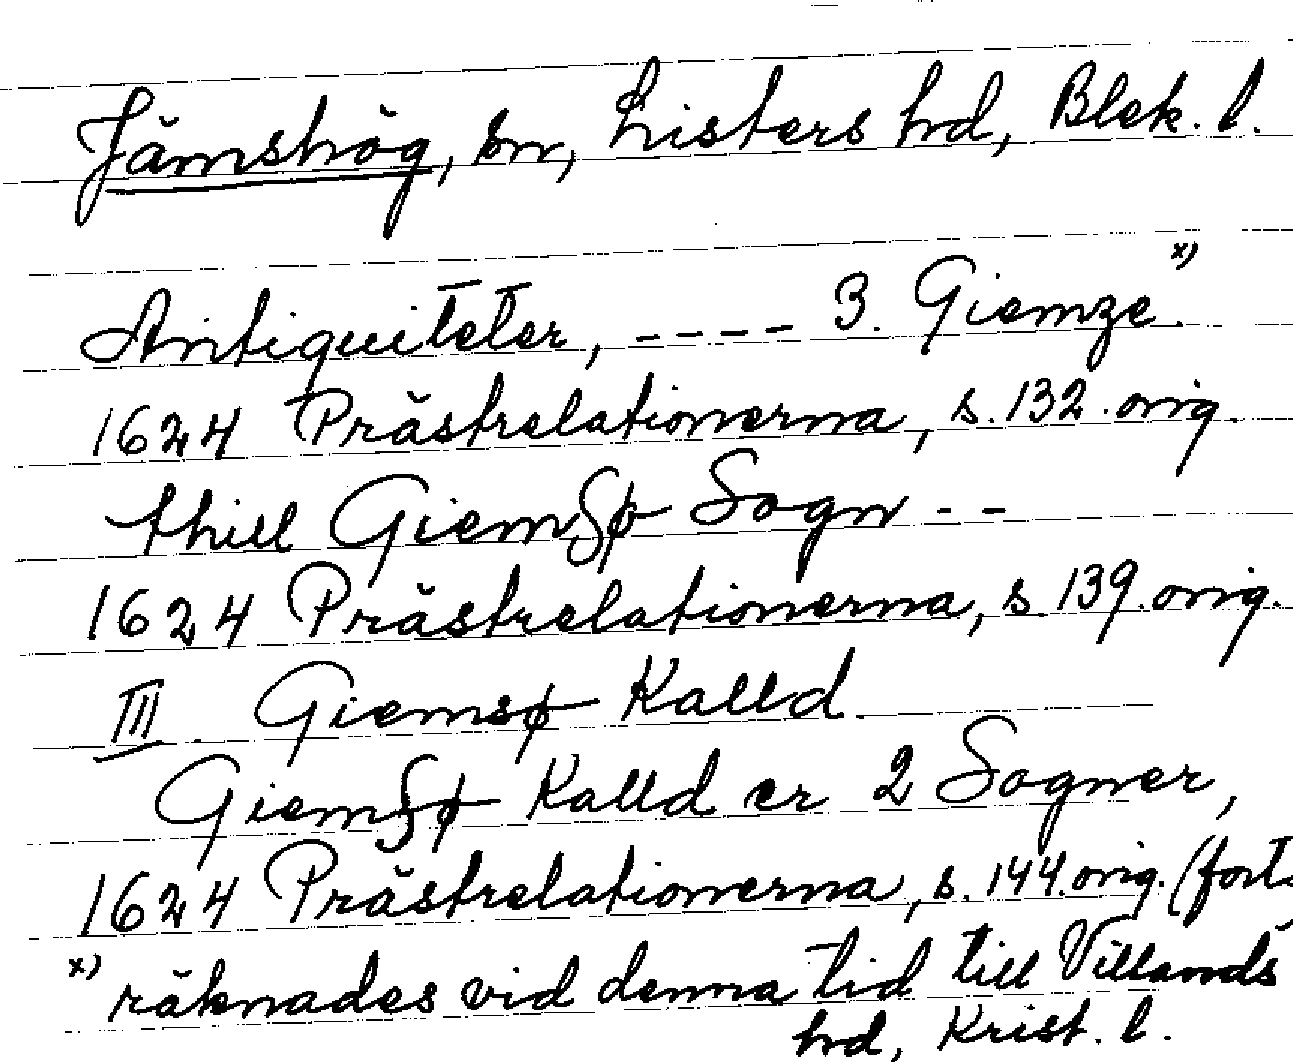 Jämshög, sn, Listers hd, Blek. l.
Antiquiteter, ---- 3. Giemze. x)
1624 Prästrelationerna, s. 132. orig.
thill Giemsø Sogn --
1624 Prästrelationerna, s 139. orig.
III. Giemsø Kalld.
Giemsø Kalld er 2 Sogner,
1624 Prästrelationerna, s. 144. orig. (forts.
x) räknades vid denna tid till Villands
hd, Krist. l.